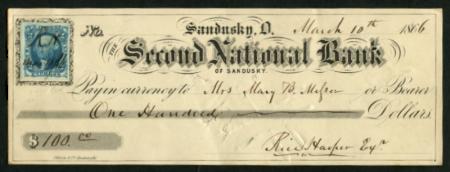 Sandusky, O. March 10th 1866
THE
Second National Bank
OF SANDUSKY.
Pay in currency to Mrs Mary B. or Bearer
One Hundred Dollars.
$100.00
Rice Harper Exr